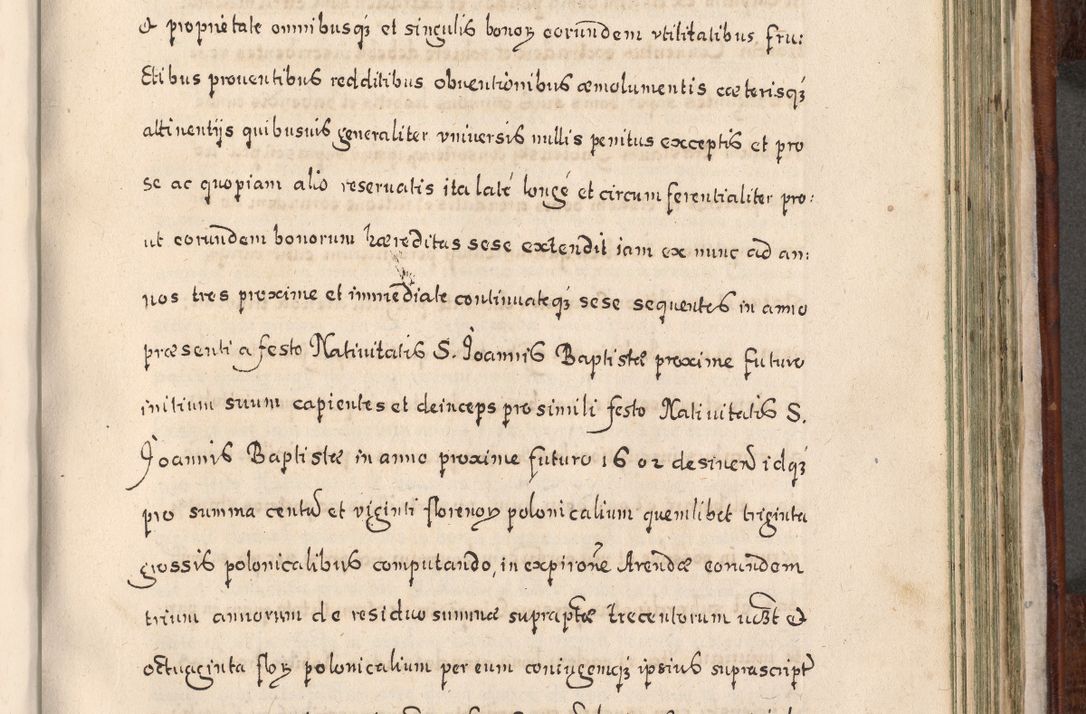 & proprietate omnibusq₃ et singulis bonoꝝ eorundem vtilitatibus fru:
ctibus prouentibus redditibus obuentionibus æmolumentis cæterisq₃
attinentijs quibusuis generaliter vniuersis nullis penitus exceptis et pro
se ac quopiam alio reseruatis ita laté longé et circumferentialiter pro:
ut eorundem bonorum hæreditas sese extendit iam ex nunc ad an:
nos tres proxime et immediate continuateq₃ sese sequentes in anno
præsenti a festo Natiuitatis S. Joannis Baptistæ proxime futuro
initium suum capientes et deinceps pro simili festo Natiuitatis S.
Joannis Baptistæ in anno proxime futuro 1602 desineñ idq₃
pro summa centũ et viginti florenoꝝ polonicalium quemlibet triginta
grossis polonicalibus computando, in expirõne Arendæ eorundem
trium annorum de residuo summæ supraptæ trecentorum &
octuaginta floꝝ polonicalium per eum coniugemq₃ ipsius suprascript